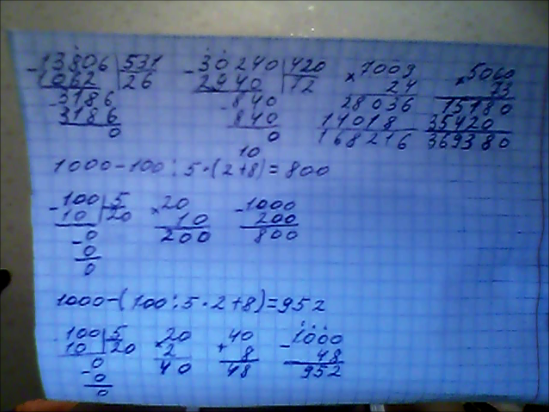 -13806 | 531
1062 | 26
-3186
3186
0
-30240 | 420
2940 | 72
-840
840
0
×7009
24
28036
14018
168216
×5060
73
15180
35420
369380
10
1000-100:5·(2+8)=800
-100 | 5
10 | 20
-0
0
0
×20
10
200
-1000
200
800
1000-(100:5·2+8)=952
-100 | 5
10 | 20
-0
0
0
×20
2
40
+40
8
48
-1000
48
952